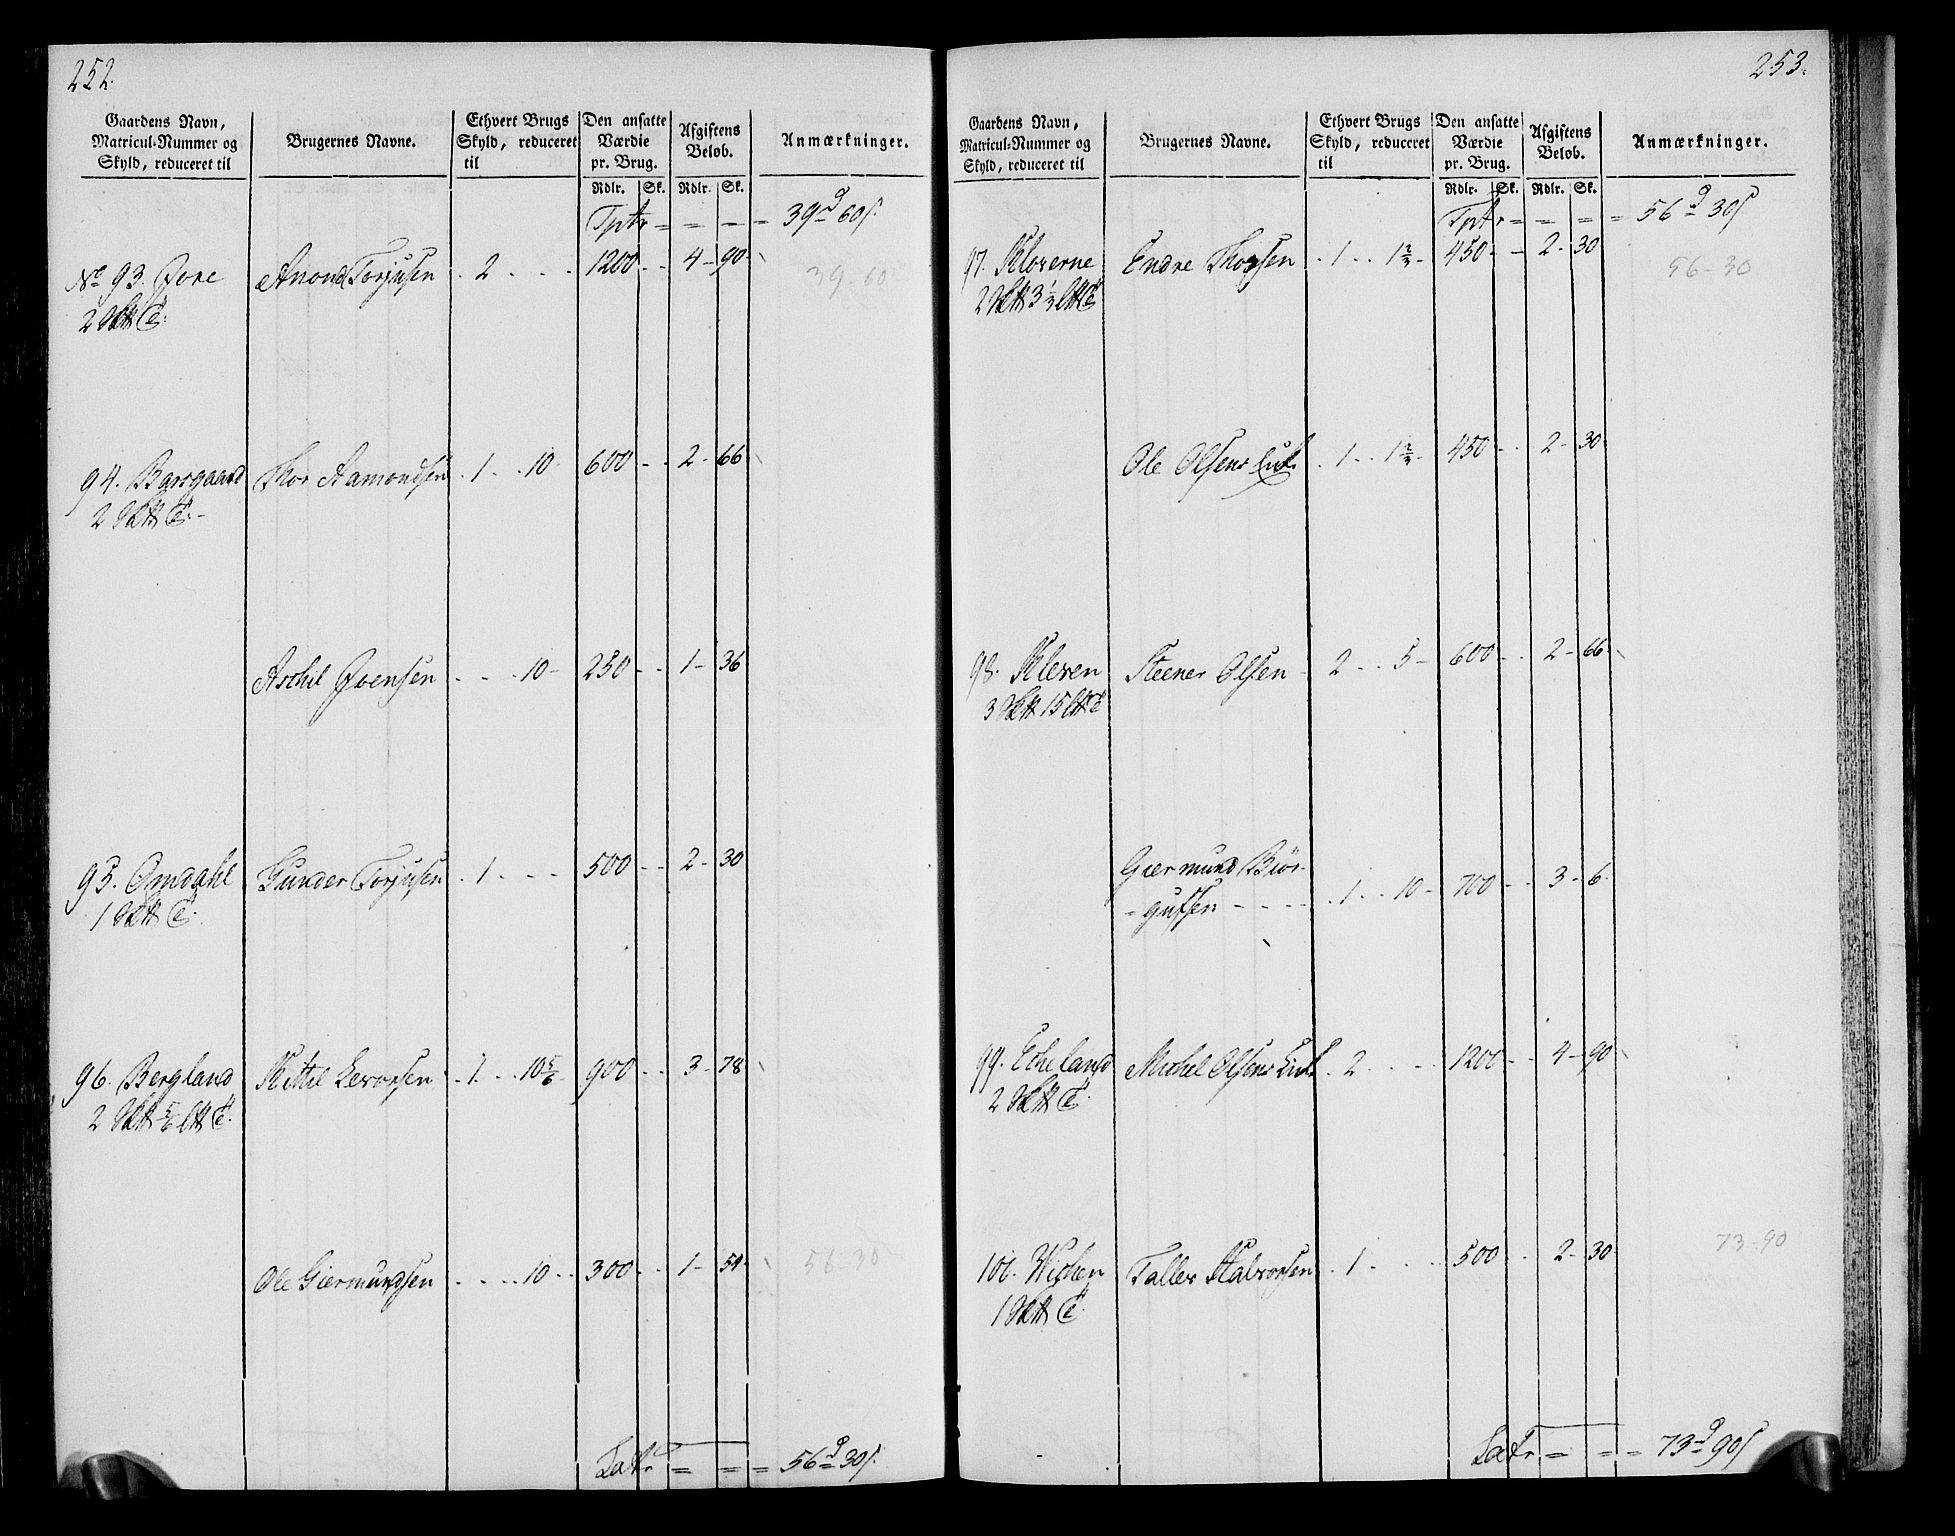 252.
Gaardens Navn, Matricul-Nummer og Skyld, reduceret til
Brugernes Navne.
Ethvert Brugs Skyld, reduceret til
Den ansatte Værdie pr. Brug.
Afgiftens Beløb.
Anmærkninger.
Rdlr. Sk. Rdlr. Sk.
Tptr = = = = 39 d 60 s.
No 93. Jore Anond Torjusen . 2 . . . 1200 . . 4 - 90 -
39-60
2
94. Barsgaard Thor Aamondsen . 1 . . 10 - 600 - - 2 - 66
2
Aschel Joensen . . . . 10 - 250 - - 1 - 36
95. Omdahl Gunder Torjusen . 1 . . . . 500 - - 2 - 30
1
96. Bergland Kittil Levorsen . 1 . . . 10 5/6 - 900 - - 3 - 78
2 5/6
Ole Giermundsen . . . . 10 . . 300 - - 1 - 54 -
56-30
Latr = = = 56 d 30 s.
253.
Gaardens Navn, Matricul-Nummer og Skyld, reduceret til
Brugernes Navne.
Ethvert Brugs Skyld, reduceret til
Den ansatte Værdie pr. Brug.
Afgiftens Beløb.
Anmærkninger.
Rdlr. Sk. Rdlr. Sk.
Tptr = = = = 56 d 30 s
97. Kloverne Endre Thorsen . 1 . . 1 2/3 - 450 - - 2 - 30
56-30
2 3 1/3
Ole Olsens Enke . 1 . . 1 2/3 - 450 - - 2 - 30
98. Kleven Steener Olsen - 2 . . 5 - 600 - . 2 - 66
3 15
Giermund Biør-
- gufsen - - - - . 1 . . 10 - 700 - - 3 - 6
99. Eikeland Michel Olsens Enke . 2 . . . . 1200 - - 4 - 90
2
100. Wiken Tallev Halvorsen . 1 . . . . 500 - - 2 - 30
73-90
1
Latr = = = 73 d 90 s